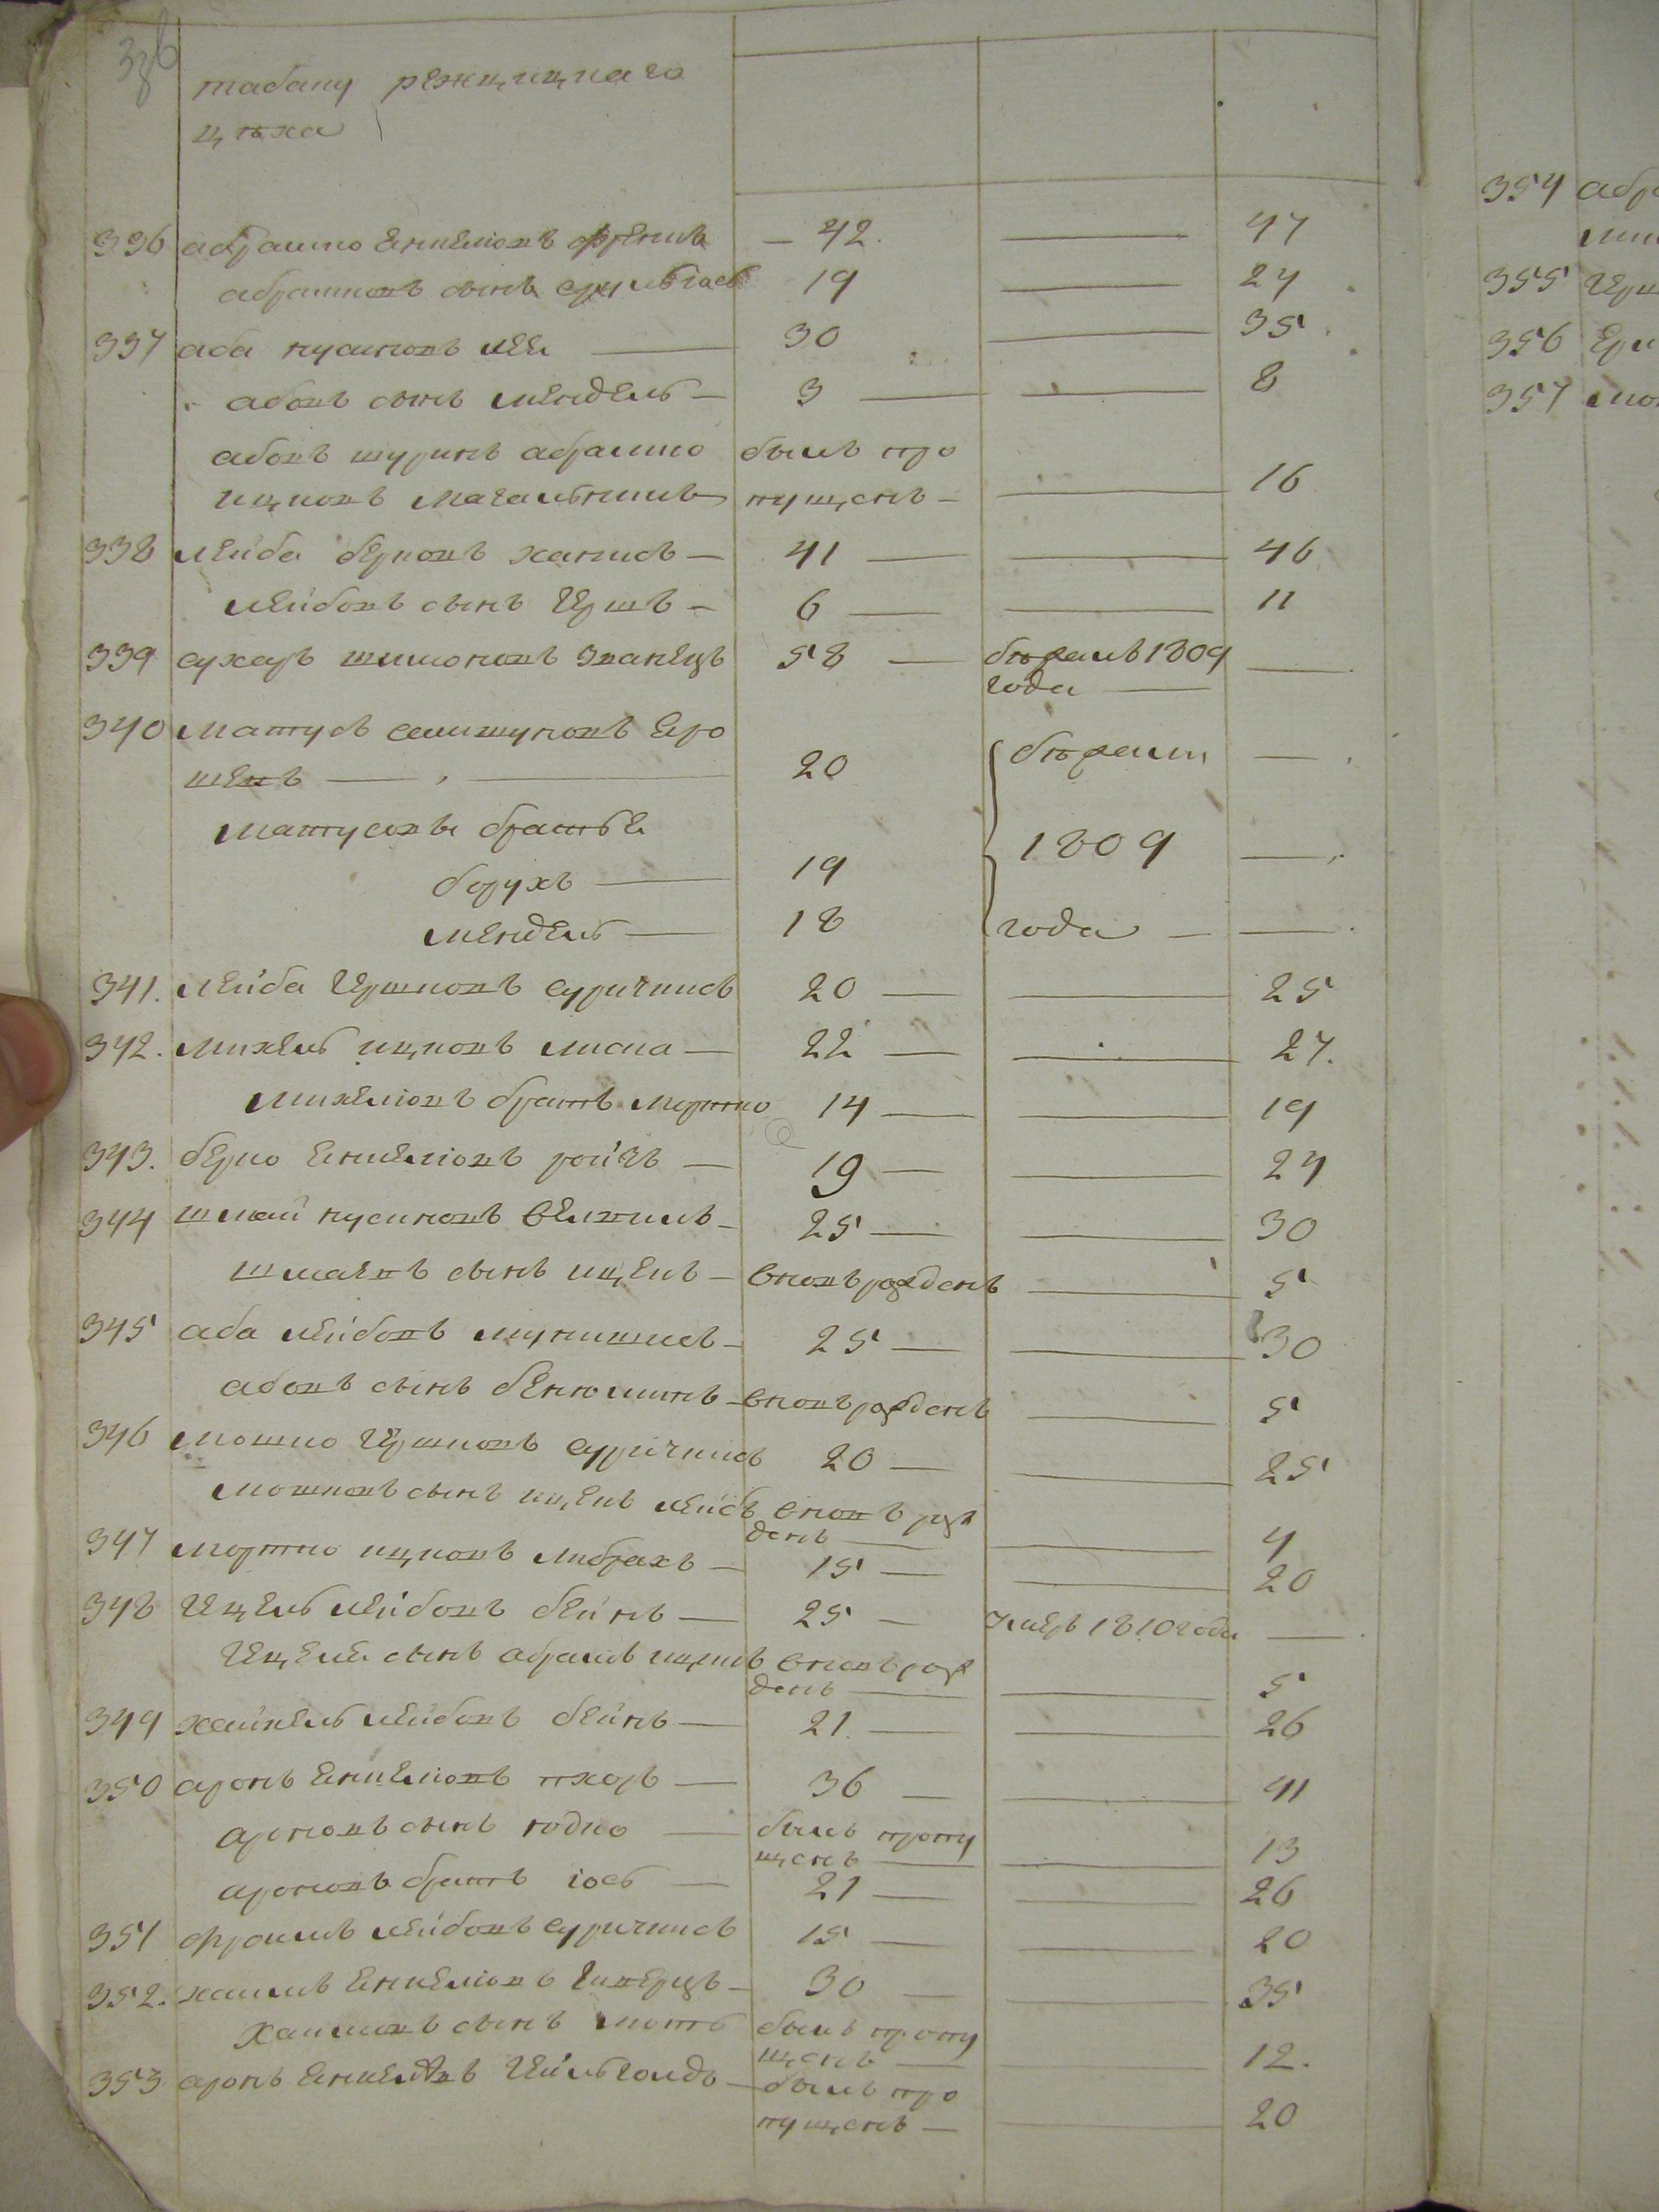 табаку резницкаго
цеха
336 абрашко Енкелiовъ — 42. — 47
абрашковъ сынъ 19 — 24
337 аба нусиновъ 30 — 35
абовъ сынъ мендель — 3 — 8
абовъ шуринъ абрашко былъ про
ицковъ пущенъ — 16
338 лейба берковъ — 41 — 46
лейбовъ сынъ Гершъ — 6 — 11
339 сухеръ шимоновъ 58 — бѣжалъ 1809 —
года —
340 матусъ Еро
шевъ — 20 бѣжали —
матусовы братья 1809 —
борухъ — 19
мендель — 18 года — —
341. лейба Гершковъ суричникъ 20 — 25
342. михель ицковъ лиска — 22 — 27.
михелiовъ братъ мортко 14 — 19
343. берко Енкелiовъ — 19 — 24
344 шмай нусиновъ — 25 — 30
шмаевъ сынъ ицекъ — вновь рожденъ — 5
345 аба лейбовъ — 25 — 30
абовъ сынъ бенюминъ — вновь рожденъ — 5
346 мошко Гершковъ суричникъ 20 — 25
мошковъ сынъ ицекъ лейбъ вновь рож
денъ — 4
347 мортко ицковъ — 15 — 20
348 Гецель лейбовъ бейнъ — 25 — умеръ 1810 года —
Гецеля сынъ абрамъ ицикъ вновь рож
денъ — 5
349 хайкель лейбовъ бейнъ — 21 — 26
350 аронъ Енкелiовъ тхоръ — 36 — 41
ароновъ сынъ юдко — былъ пропу
щенъ — 13
ароновъ братъ iось — 21 — 26
351 фроимъ лейбовъ суричникъ 15 — 20
352. хаимъ Енкелiовъ — 30 — 35
Хаимовъ сынъ мотъ былъ пропу
щенъ — 12.
353 аронъ Енкелiовъ Гейльголдъ — былъ про
пущенъ — 20
354
355
356
357